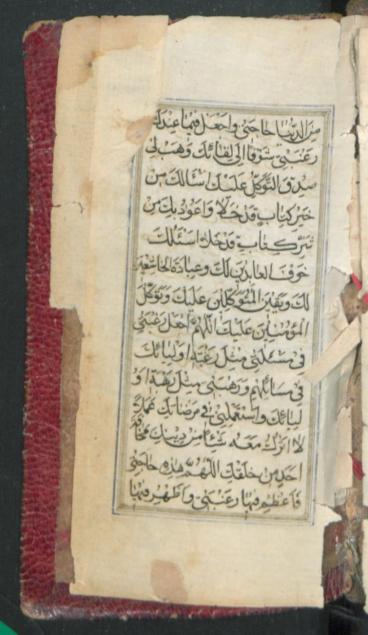 من الدنيا حاجتي واجعل فيما عندك
رغبتي شوقا الى لقائك وهب لي
صدق التوكل عليك اسئالك من
خير كتاب قد خلا واعوذ بك من
شر كتاب قد خلا اسئلك
خوف العابدين لك وعبادة الخاشعين
لك ويقين المتوكلين عليك وتوكل
المؤمنين عليك اللهم اجعل رغبتي
في مسئلتي مثل رغبة اوليائك
في مسائلهم ورهبتي مثل رهبة او
ليائك واستعملني في مرضاتك عملا
لا اترك معه شيئا من دينك مخافة
احد من خلقك اللهم هذه حاجتي
فاعظم فيها رغبتي واظهر فيها